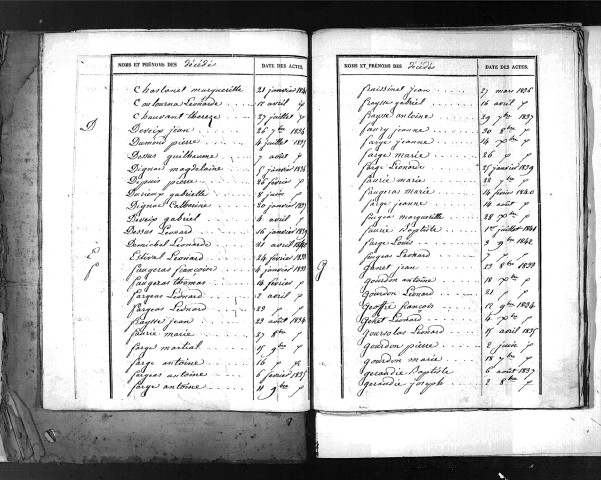 NOMS ET PRÉNOMS DES décédés DATE DES ACTES.
Chastanet marguerite 21 janvier
Couturna Léonarde 12 avril
Chauvant thereze 27 juillet
D
Deveix jean 26 7bre 1834
Dumond pierre 4 juillet 1835
Dessus guilheaume 7 aout
Dignac magdelaine 5 janvier 1836
Dupuis pierre 26 février
Durieux gabrielle 8 juin
Dignac Catherine 20 janvier
Deveix gabriel 4 avril
Dessus Léonard 16 janvier
Demichal Léonarde 21 avril 1840
E
Estival Léonard 24 février
f
faugeras françoise 4 janvier 1833
faugeras thomas 14 février
fargeas Léonard 2 avril
fargeas Léonard 29
fraysse jean 22 aout 1834
faurie marie 27 8bre
farge martial 15 9bre
farge antoine 16
fargeas antoine 6 février 1835
farge antoine 11 9bre
NOMS ET PRÉNOMS DES décédés DATE DES ACTES.
fraissinet jean 27 mars 1836
fraysse gabriel 16 avril
fayve antoine 29 7bre 1837
faury jeanne 30 8bre
farge jeanne 14 Xbre
farge marie 26
farge Léonarde 25 janvier 1839
faurie marie 22
faugeras marie 14 février 1840
farge jeanne 14 aout
faugeas marguerite 28 Xbre
faurie Baptiste 1er juillet 1841
farge Louis 3 9bre 1842
faugeas Léonard 7
g
ganet jean 23 8bre 1833
gourdon antoine 18 Xbre
gourdon Léonard 21
geoffre françois 27 9bre 1834
genet Léonard 4 Xbre
goursolas Léonard 15 avril 1835
gourdon pierre 2 juin
gourdon marie 18 7bre
gerandie Baptiste 6 aout 1837
gerandie joseph 2 8bre